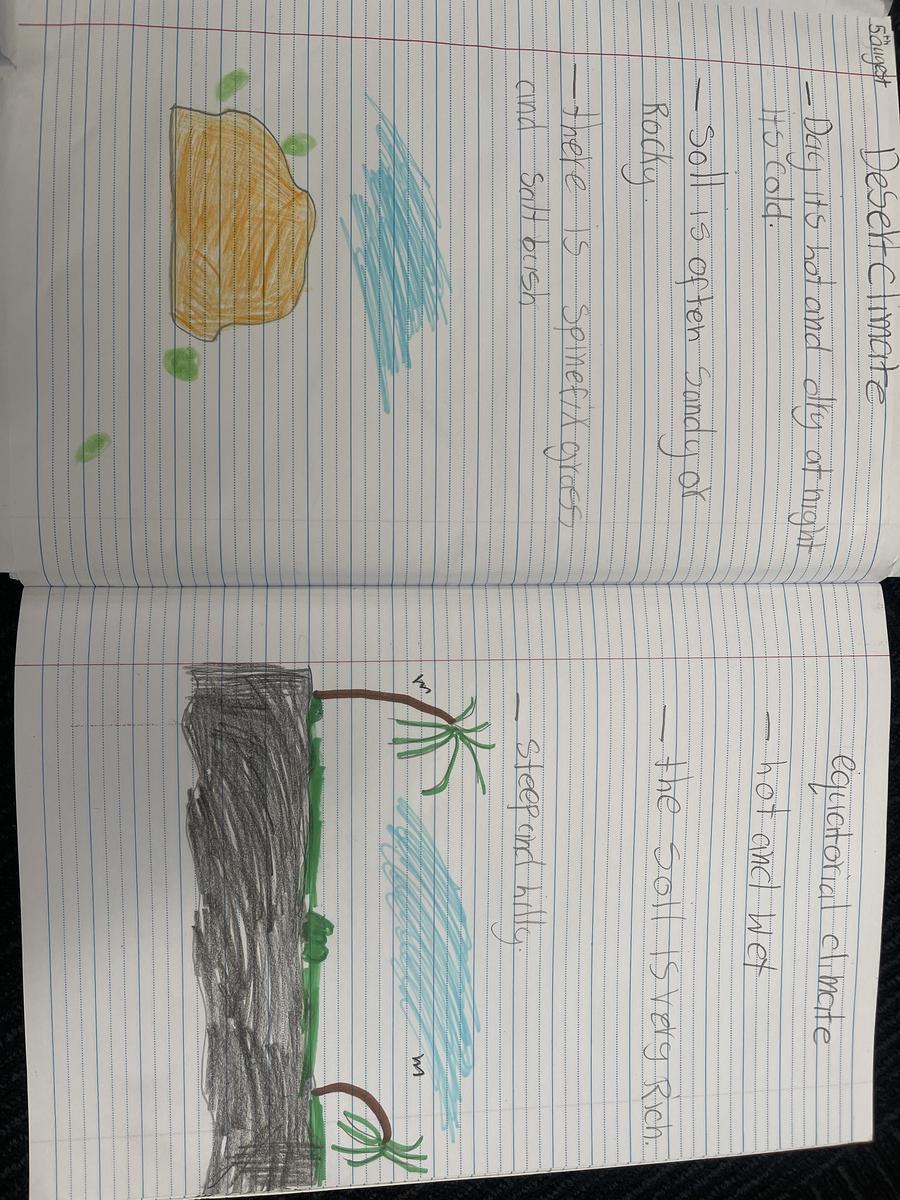 5th August
Desert Climate
- Day its hot and dry at night
its cold.
- Soil is often Sandy or
Rocky.
- there is Spinefix grass,
and salt bush
equatorial climate
- hot and wet
- the soil is very Rich.
- steep and hilly.